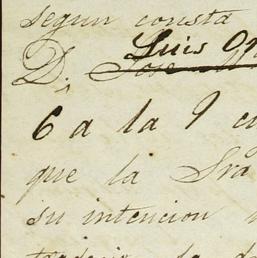 segun consta
Luis
D. Jose
6 a la 9
que la Sra
su intencion